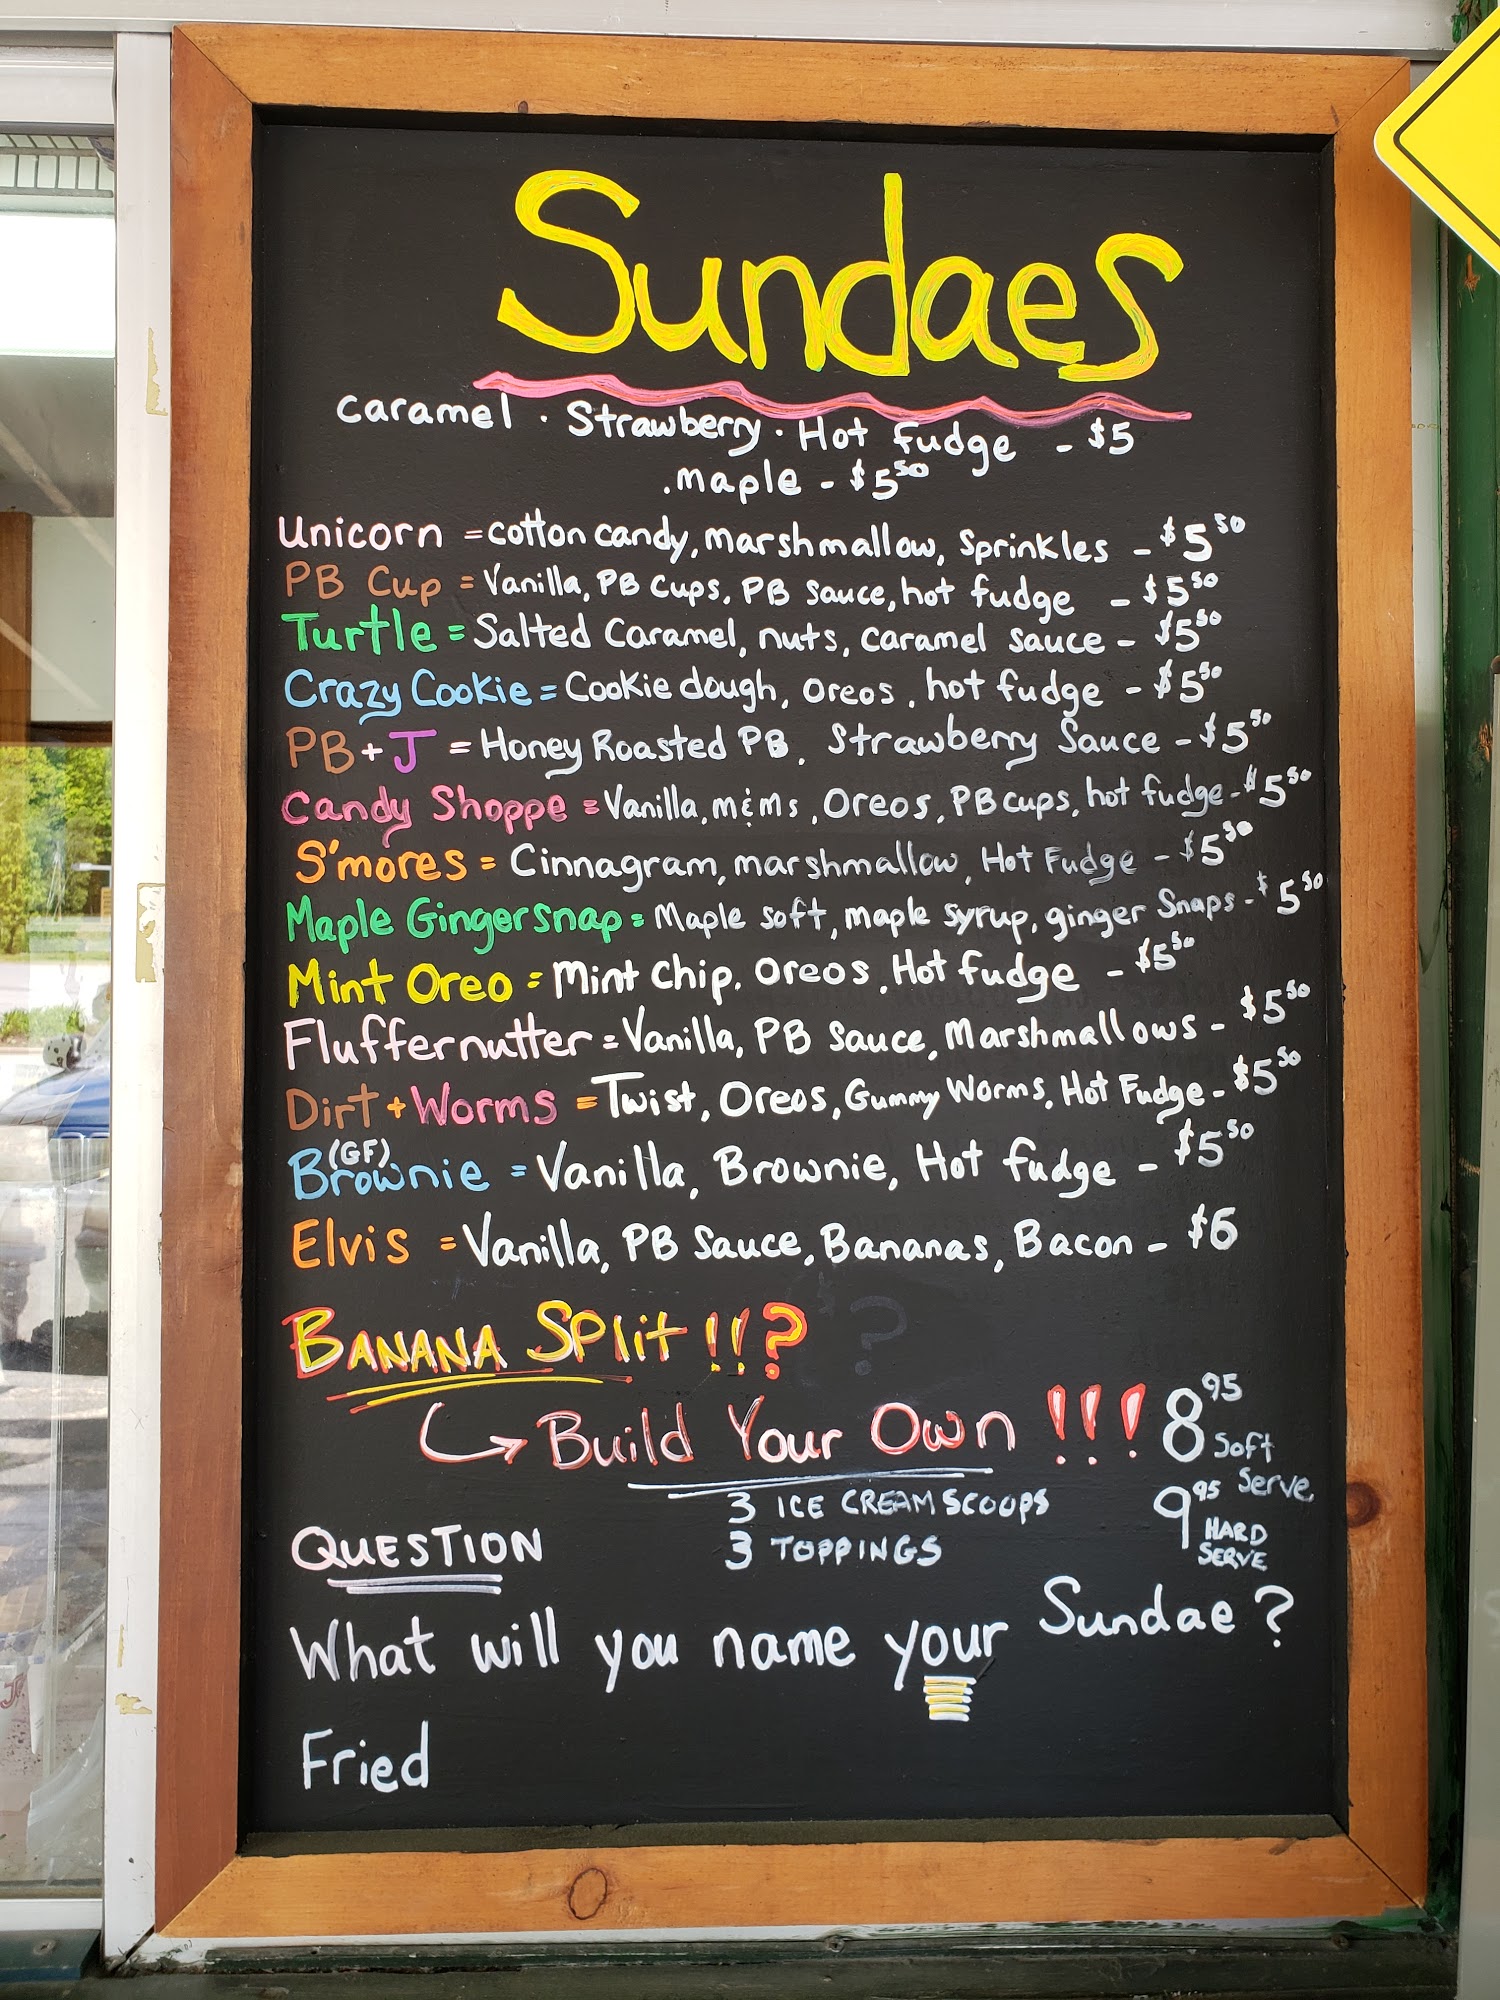 Sundaes
caramel · Strawberry · Hot fudge - $5
.maple - $5⁵⁰
Unicorn = cotton candy, marshmallow, Sprinkles - $5⁵⁰
PB Cup = Vanilla, PB Cups, PB sauce, hot fudge - $5⁵⁰
Turtle = Salted Caramel, nuts, caramel sauce - $5⁵⁰
Crazy Cookie = Cookie dough, Oreos, hot fudge - $5⁵⁰
PB + J = Honey Roasted PB, Strawberry Sauce - $5⁵⁰
Candy Shoppe = Vanilla, m&ms, Oreos, PB cups, hot fudge - $5⁵⁰
S'mores = Cinnagram, marshmallow, Hot Fudge - $5⁵⁰
Maple Gingersnap = Maple soft, maple syrup, ginger Snaps - $5⁵⁰
Mint Oreo = Mint Chip, Oreos, Hot fudge - $5⁵⁰
Fluffernutter = Vanilla, PB Sauce, Marshmallows - $5⁵⁰
Dirt + Worms = Twist, Oreos, Gummy Worms, Hot Fudge - $5⁵⁰
(GF)
Brownie = Vanilla, Brownie, Hot fudge - $5⁵⁰
Elvis = Vanilla, PB Sauce, Bananas, Bacon - $6
BANANA Split !!?
Build Your Own !!! 8⁹⁵ Soft Serve
3 ICE CREAM SCOOPS
3 TOPPINGS
9⁹⁵ HARD SERVE
QUESTION
What will you name your Sundae?
Fried